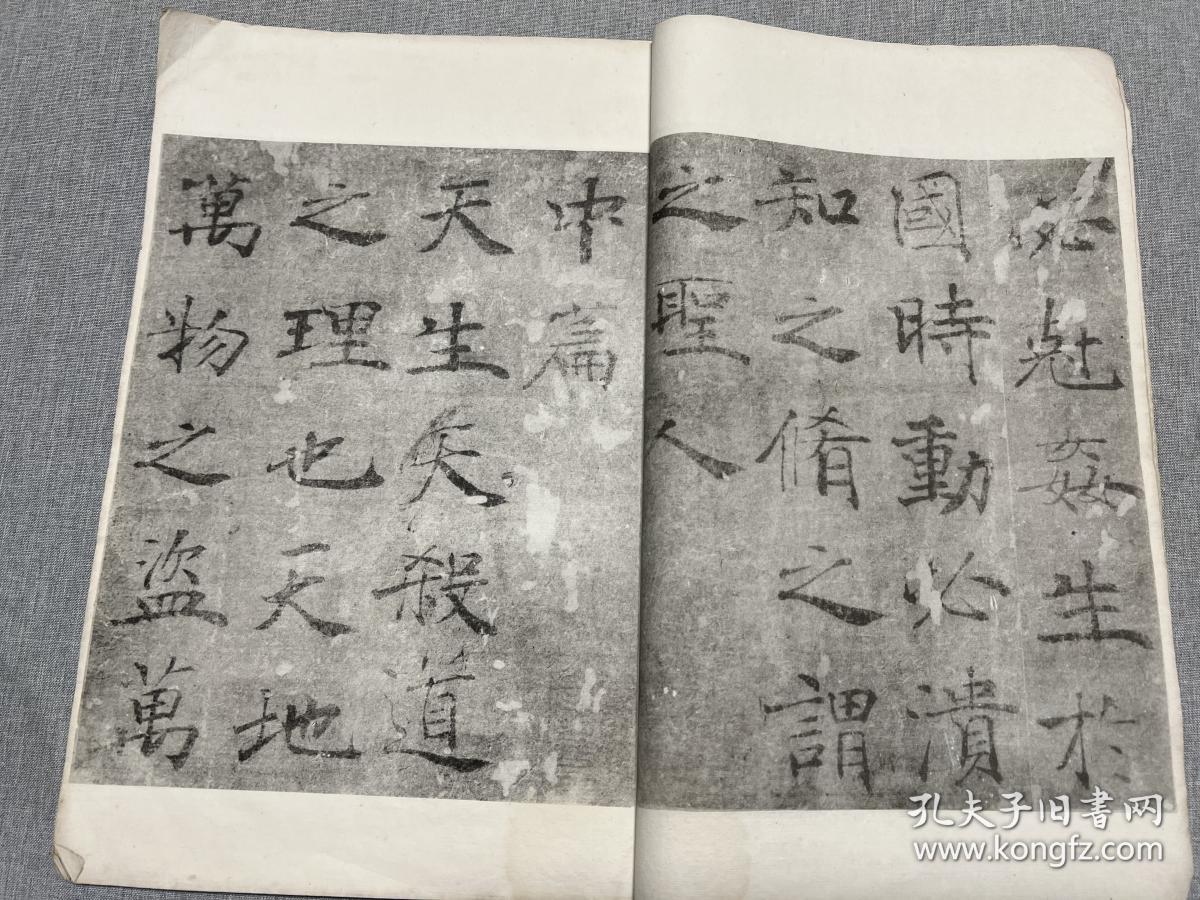 必尅姦生於
國時動必潰
知之脩之謂
之聖人
中篇
天生天殺道
之理也天地
萬物之盜萬
孔夫子旧书网
www.kongfz.com